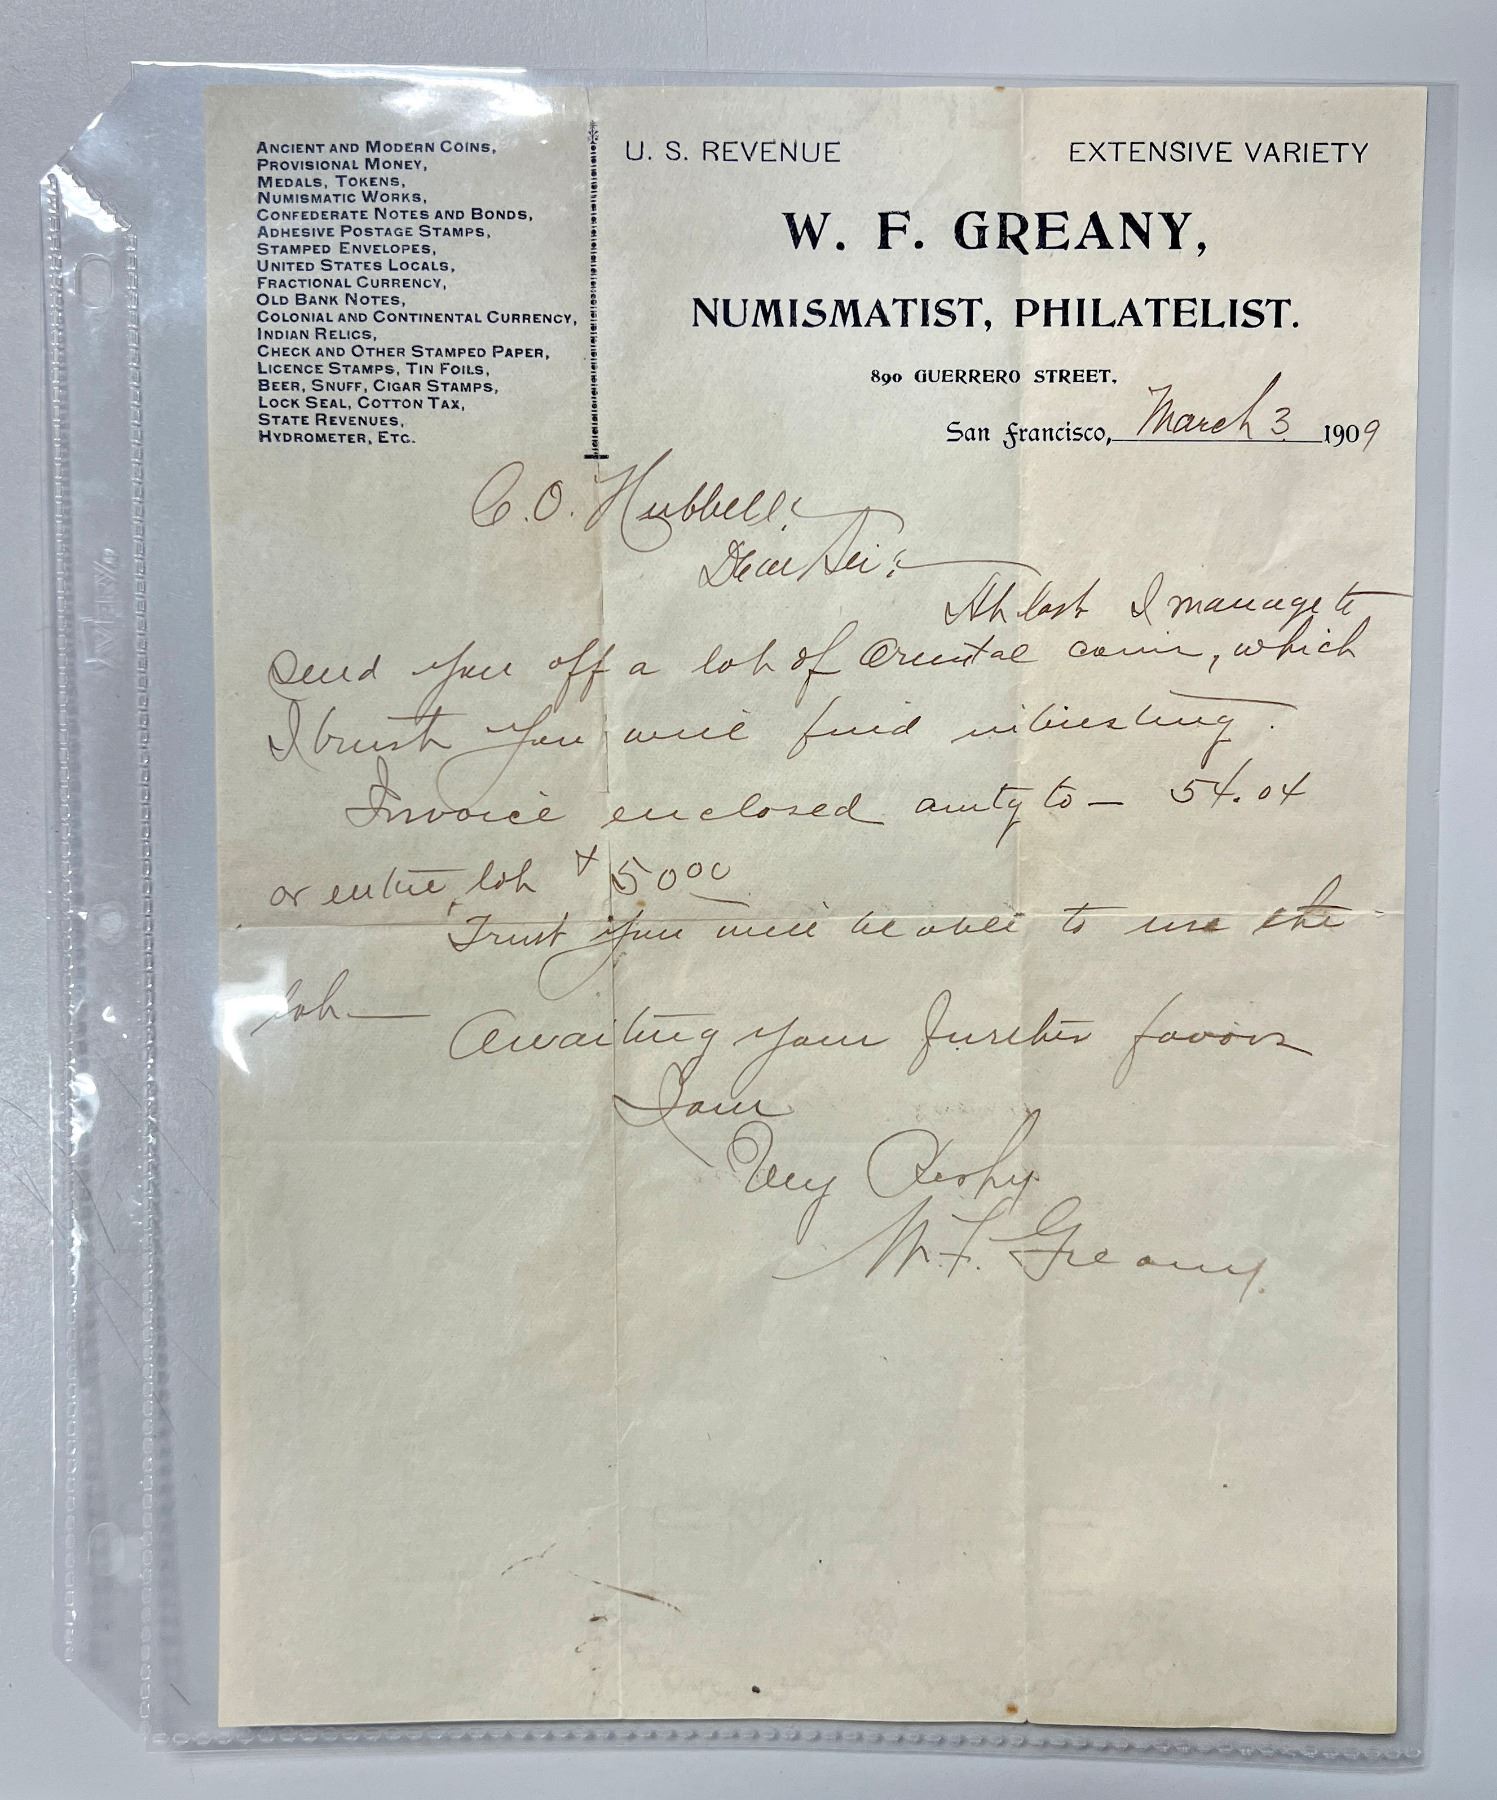 ANCIENT AND MODERN COINS,
PROVISIONAL MONEY,
MEDALS, TOKENS,
NUMISMATIC WORKS,
CONFEDERATE NOTES AND BONDS,
ADHESIVE POSTAGE STAMPS,
STAMPED ENVELOPES,
UNITED STATES LOCALS,
FRACTIONAL CURRENCY,
OLD BANK NOTES,
COLONIAL AND CONTINENTAL CURRENCY,
INDIAN RELICS,
CHECK AND OTHER STAMPED PAPER,
LICENCE STAMPS, TIN FOILS,
BEER, SNUFF, CIGAR STAMPS,
LOCK SEAL, COTTON TAX,
STATE REVENUES,
HYDROMETER, ETC.
U. S. REVENUE EXTENSIVE VARIETY
W. F. GREANY,
NUMISMATIST, PHILATELIST.
890 GUERRERO STREET,
San Francisco, March 3 1909
C. O. Hubbell:
Dear Sir:
At last I manage to
send you off a lot of Oriental coins, which
I trust you will find interesting.
Invoice enclosed amtg to — 54.04
or entire lot $50 00
Trust you will be able to use the
lot —
Awaiting your further favors
I am
Very Resply
W. F. Greany.
AVERY